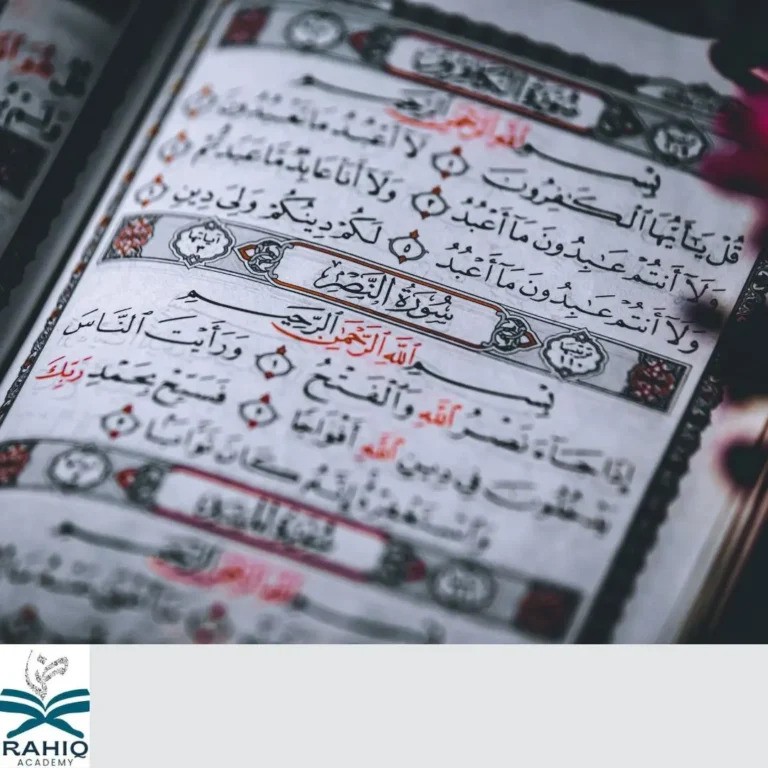 سُورَةُ الكَافِرُونَ
بِسْمِ ٱللَّهِ ٱلرَّحْمَٰنِ ٱلرَّحِيمِ
قُلْ يَٰٓأَيُّهَا ٱلْكَٰفِرُونَ ١ لَآ أَعْبُدُ مَا تَعْبُدُونَ ٢
وَلَآ أَنتُمْ عَٰبِدُونَ مَآ أَعْبُدُ ٣ وَلَآ أَنَا۠ عَابِدٌ مَّا عَبَدتُّمْ ٤
وَلَآ أَنتُمْ عَٰبِدُونَ مَآ أَعْبُدُ ٥ لَكُمْ دِينُكُمْ وَلِىَ دِينِ ٦
سُورَةُ النَّصْرِ
بِسْمِ ٱللَّهِ ٱلرَّحْمَٰنِ ٱلرَّحِيمِ
إِذَا جَآءَ نَصْرُ ٱللَّهِ وَٱلْفَتْحُ ١ وَرَأَيْتَ ٱلنَّاسَ
يَدْخُلُونَ فِى دِينِ ٱللَّهِ أَفْوَاجًا ٢ فَسَبِّحْ بِحَمْدِ رَبِّكَ
وَٱسْتَغْفِرْهُ إِنَّهُۥ كَانَ تَوَّابًۢا ٣
بِسْمِ ٱللَّهِ ٱلرَّحْمَٰنِ ٱلرَّحِيمِ
RAHIQ
ACADEMY